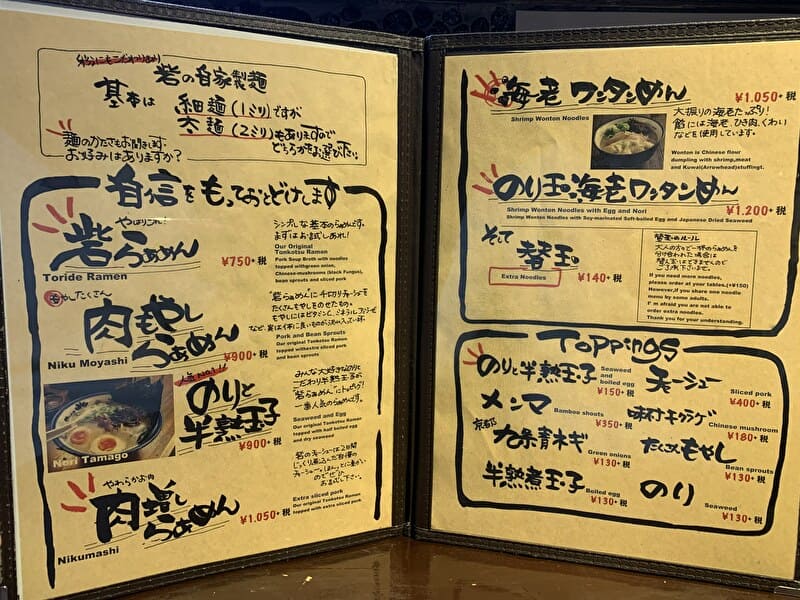 砦の自家製麺
基本は 細麺(1ミリ)ですが
太麺(2ミリ)もありますので
どちらかをお選び下さい。
麺のかたさもお聞きします。
お好みはありますか?
自信をもっておとどけします
やはりこれ!
砦らぁめん
Toride Ramen
¥750+税
シンプルな基本のらぁめんです。
まずはお試しあれ!
Our Original
Tonkotsu Ramen
Pork Soup Broth with noodles
topped withgreen onion,
Chinese-mushroom (black Fungus),
bean sprouts and sliced pork
もやしたくさん
肉もやし
らぁめん
Niku Moyashi
¥900+税
砦らぁめんに千切りチャーシューと
たくさんもやしをのせたもの。
もやしにはビタミンC、ミネラル、
Pork and Bean Sprouts
Our original Tonkotsu Ramen
topped withextra sliced pork
and bean sprouts
人気NO.1!!
のりと
半熟玉子
¥900+税
Nori Tamago
みんな大好きなのりと
こだわり半熟玉子が
"砦らぁめん"にトッピング!
一番人気のらぁめんです。
Seaweed and Egg
Our original Tonkotsu Ramen
topped with half boiled egg
and dry seaweed
やわらかお肉
肉増し
らぁめん
Nikumashi
¥1.050+税
Extra sliced pork
Our original Tonkotsu Ramen
topped with extra sliced pork.
海老ワンタンめん
¥1.050+税
Shrimp Wonton Noodles
大振りの海老たっぷり!
餡には海老、ひき肉、くわい
などを使用しています。
Wonton is Chinese flour
dumpling with shrimp,meat
and Kuwai(Arrowhead)stuffingt.
のり玉海老ワンタンめん
¥1.200+税
Shrimp Wonton Noodles with Egg and Nori
Shrimp Wonton Noodles with Soy-marinated Soft-boiled Egg and Japanese Dried Seaweed
そして
替玉
Extra Noodles
¥140+税
替玉のルール
大人の方で一杯のらぁめんを
分け合われた場合は
替え玉はできませんので
ご了承下さいませ。
If you need more noodles,
please order at your tables.(+¥150)
However,if you share one noodle
menu by some adults.
I' m afraid you are not able to
order extra noodles.
Thank you for your understanding.
Toppings
のりと半熟玉子
Seaweed
and
boiled egg
¥150+税
チャーシュー
Sliced pork
¥400+税
メンマ
Bamboo shoots
¥350+税
味付キクラゲ
Chinese mushroom
¥180+税
京都
九条青ネギ
Green onions
¥130+税
たくさんもやし
Bean sprouts
¥130+税
半熟煮玉子
Boiled egg
¥130+税
のり
Seaweed
¥130+税